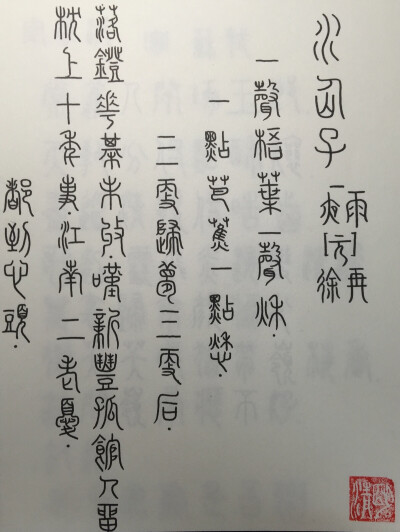 水仙子
一夜雨
[元]徐再
一聲梧葉一聲秋.
一點芭蕉一點愁.
三更歸夢三更后.
落鐙花棊未收.嘆新豐孤館人畱
枕上十年事.江南二老憂.
都到心頭.